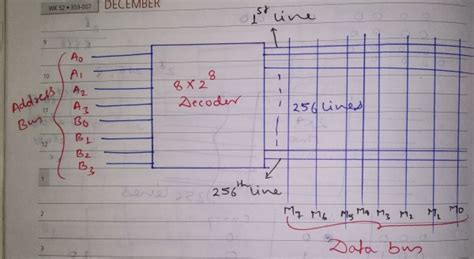 WK 52 • 359-007
DECEMBER
1st line
9
10
11
12
1
2
3
Address Bus
A0
A1
A2
A3
B0
B1
B2
B3
8 x 2^8
Decoder
256 lines
256th line
M7 M6 M5 M4 M3 M2 M1 M0
Data bus